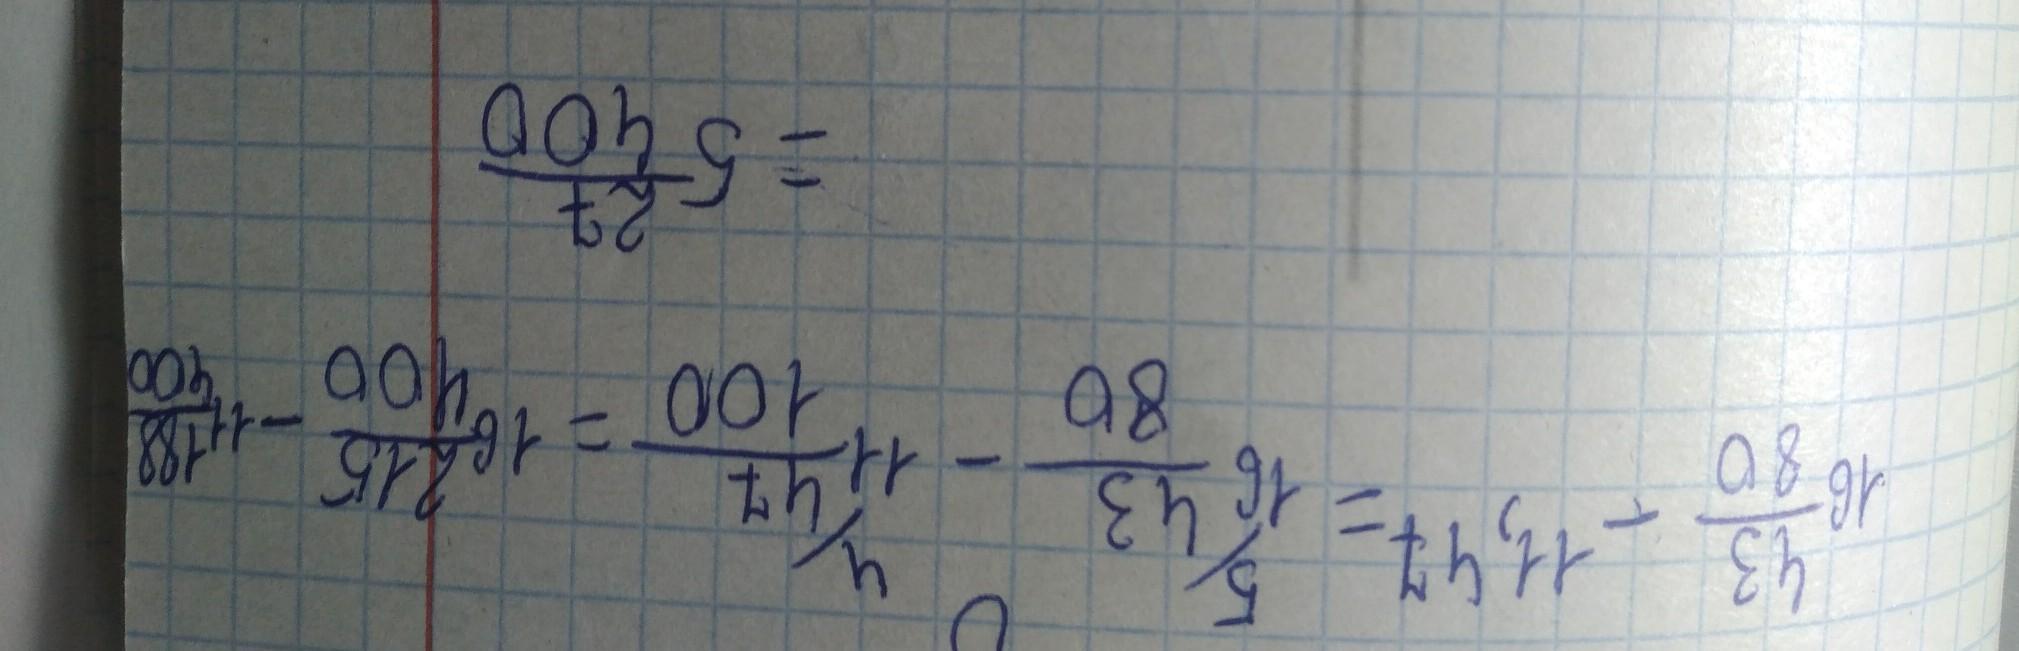 16 43/80 - 11,47 = 16 43/80 ⁵⁄ - 11 47/100 ⁴⁄ = 16 215/400 - 11 188/400
= 5 27/400